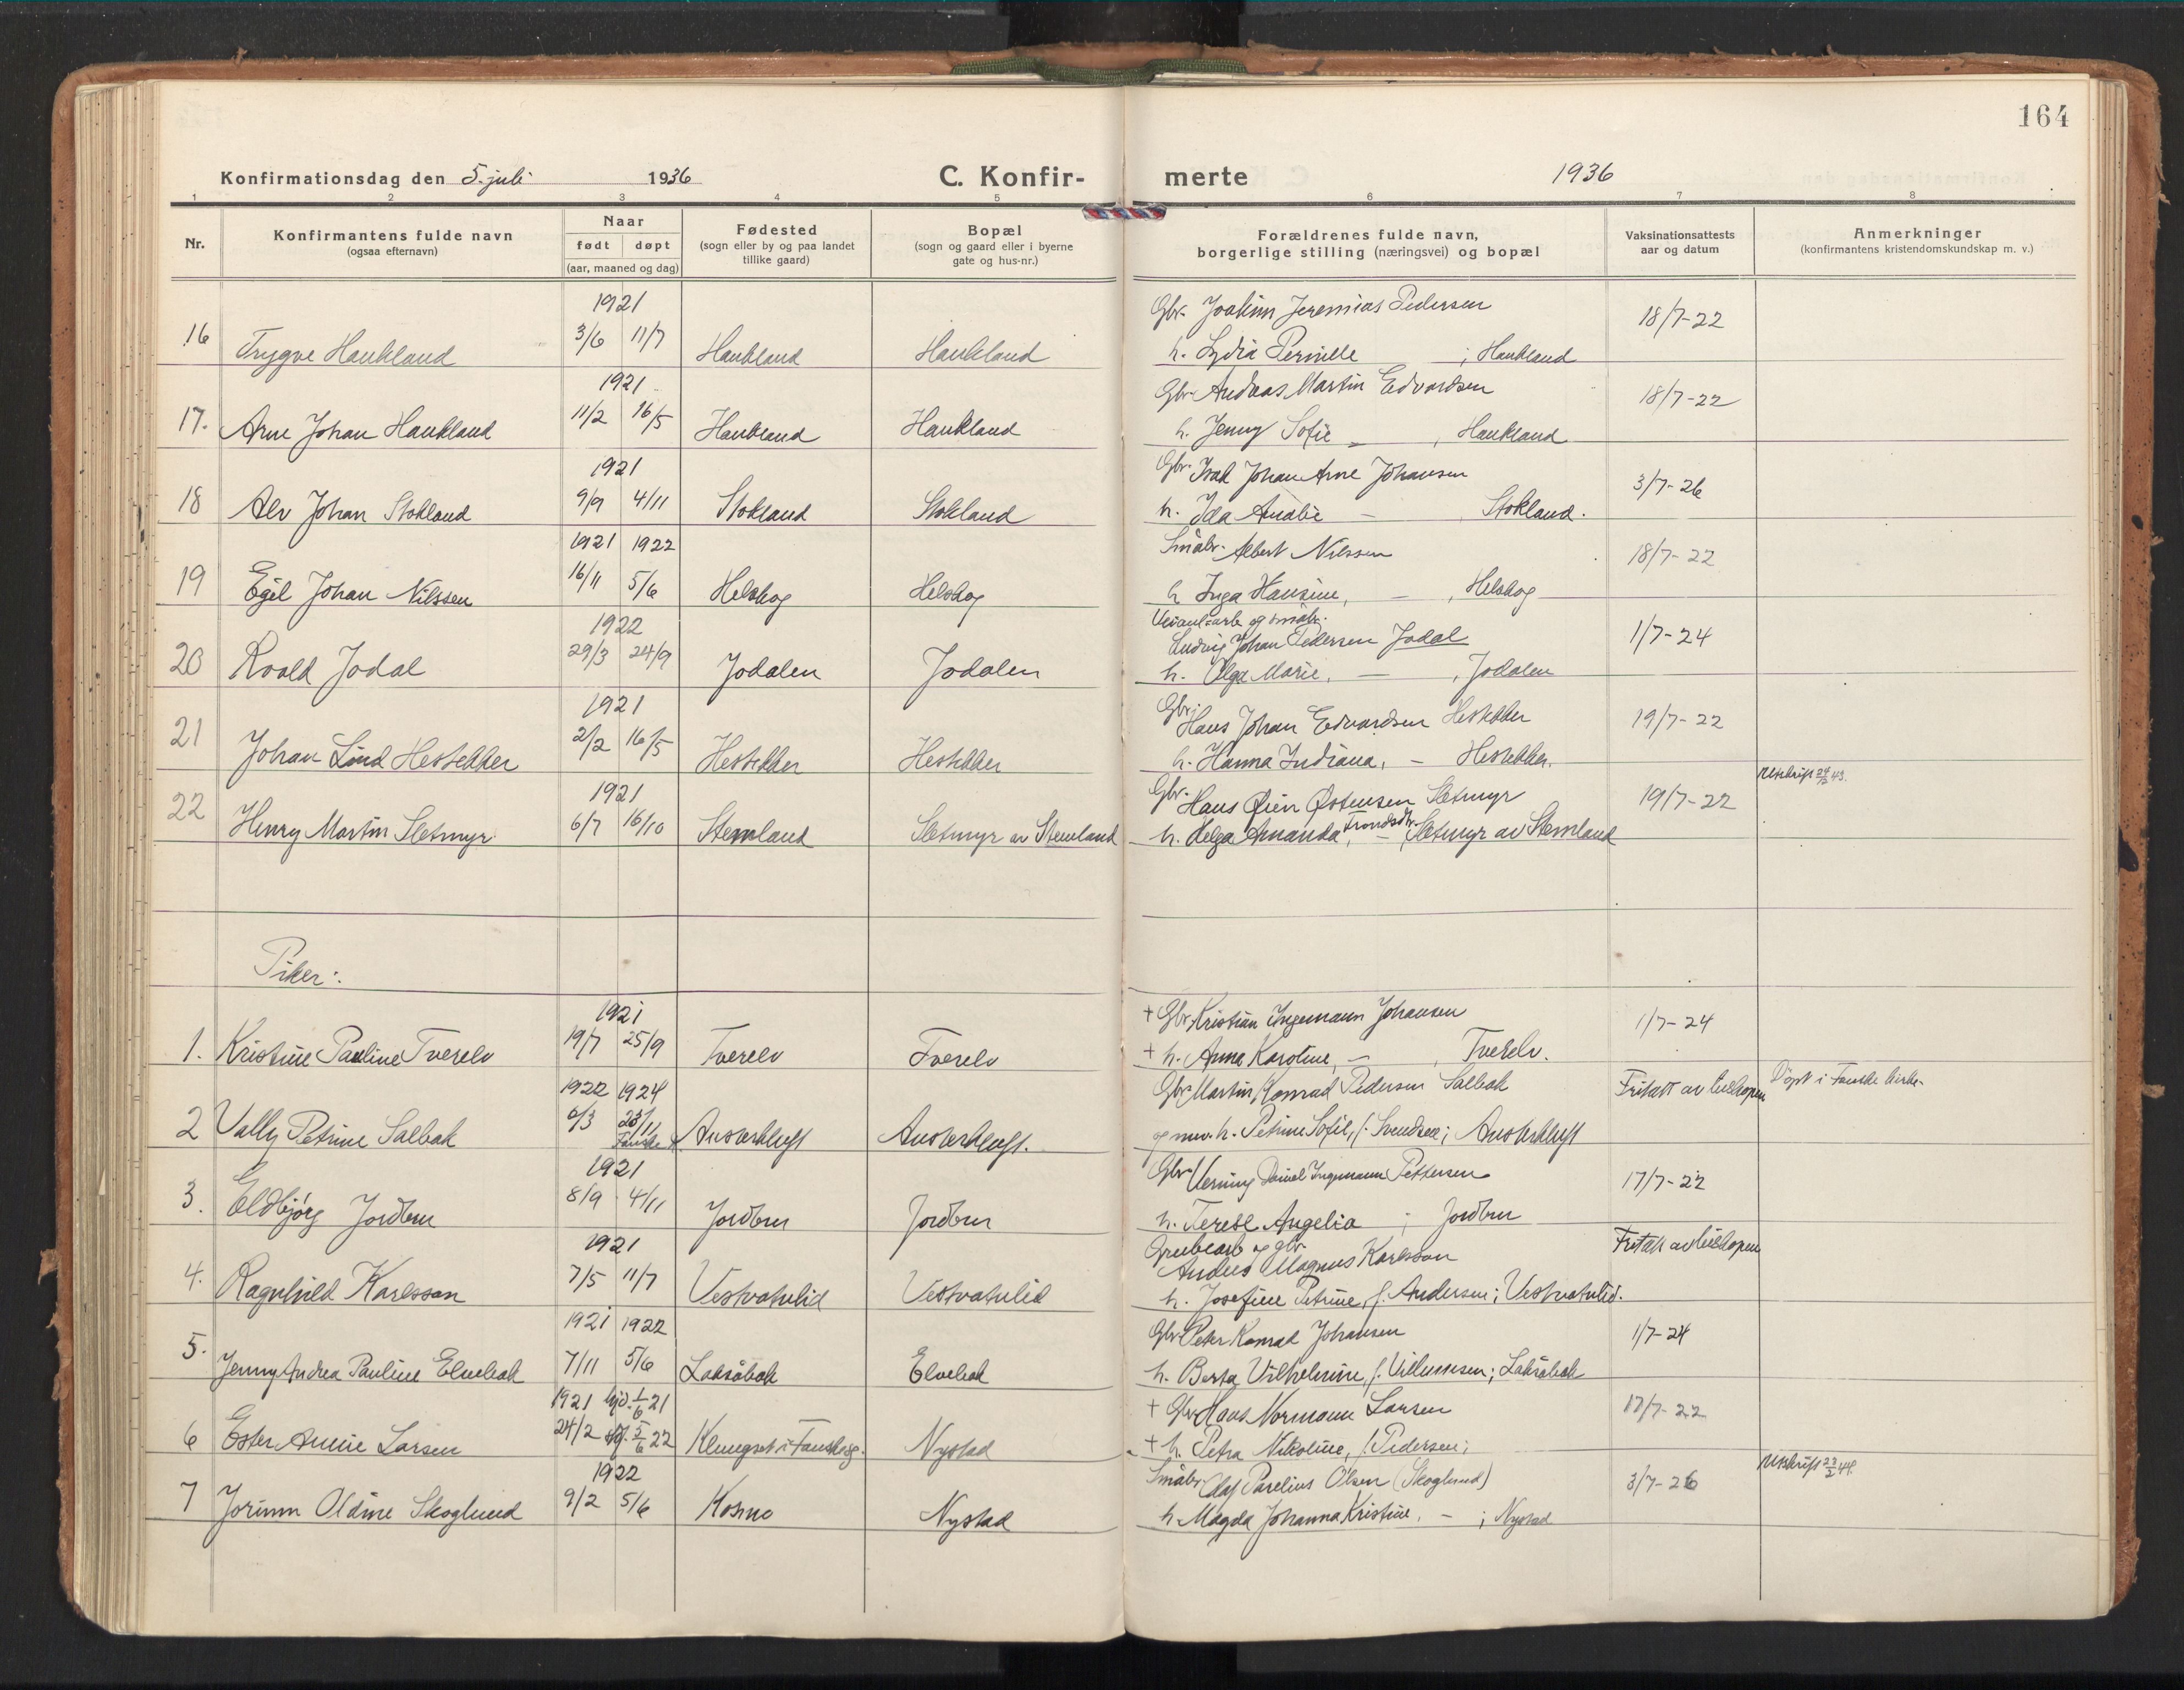 164
Konfirmationsdag den 5. juli 1936 C. Konfir-
merte 1936
1 2 3 4 5 6 7 8
Nr. Konfirmantens fulde navn (ogsaa efternavn) Naar født døpt (aar, maaned og dag) Fødested (sogn eller by og paa landet tillike gaard) Bopæl (sogn og gaard eller i byerne gate og hus-nr.) Forældrenes fulde navn, borgerlige stilling (næringsvei) og bopæl Vaksinationsattests aar og datum Anmerkninger (konfirmantens kristendomskundskap m. v.)
1921 Gbr. Joakim Jeremias Pedersen
16 Trygve Haukland 3/6 11/7 Haukland Haukland h. Lydia Pernille ; Haukland 18/7-22
1921 Gbr. Andreas Martin Edvardsen
17. Arne Johan Haukland 11/2 16/5 Haukland Haukland h. Jenny Sofie " , Haukland 18/7-22
1921 Gbr. Johan Arne Johansen
18 Alv Johan Stokland 9/9 4/11 Stokland Stokland h. Ida Amalie - , Stokland. 3/7-26
1921 1922 Småbr. Albert Nilssen
19 Egil Johan Nilssen 16/11 5/6 Helskog Helskog h. Inga Hansine, - , Helskog 18/7-22
1922 Veianl=arb. og småbr.
Ludvig Johan Pedersen Jodal
20 Roald Jodal 29/3 24/9 Jodalen Jodalen h. Olga Marie, - , Jodalen 1/7-24
1921 Gbr. Hans Johan Edvardsen Hestekker
21 Johan Lind Hestekker 2/2 16/5 Hestekker Hestekker h. Hanna Indiana, - Hestekker. 19/7-22
1921 Gbr. Hans Øien Østensen Sletmyr Utskrift 24/2 43.
22 Henry Martin Sletmyr 6/7 16/10 Stemland Sletmyr av Stemland h. Helga Amanda, Trondsdtr. - , Sletmyr av Stemland 19/7-22
Piker:
1921 + Gbr. Kristian Ingemann Johansen
1. Kristine Pauline Tverelv 19/7 25/9 Tverelv Tverelv + h. Anna Karoline, - , Tverelv. 1/7-24
1922 1924 Gbr. Martin Konrad Pedersen Salbak Fritatt av biskopen Døpt i Fauske kirke.
2 Vally Petrine Salbak 6/3 23/11 Fauske k. Austerkluft Austerkluft. og nuv. h. Petrine Sofie, f. Svendsen; Austerkluft
1921 Gbr. Verning Daniel Ingemann Pettersen
3. Eldbjørg Jordbru 8/9 4/11 Jordbru Jordbru h. Terese Angelia ; Jordbru 17/7-22
1921 Grubearb. og gbr. Anders Magnus Karlsson
4. Ragnhild Karlsson 7/5 11/7 Vestvatnlid Vestvatnlid h. Josefine Petrine, f. Andersen; Vestvatnlid. Fritatt av biskopen
1921 1922 Gbr. Peter Konrad Johansen
5. Jenny Andrea Pauline Elvebak 7/11 5/6 Laksåbak Elvebak h. Berta Vilhelmine, f. Villumsen; Laksåbak 1/7-24
1921 hjd. 1/6 21 + Gbr. Hans Normann Larsen
6 Ester Annie Larsen 24/2 stf. 5/6 22 Klungset i Fauske sg. Nystad + h. Petra Nikoline, f. Pedersen; 17/7-22
1922 Småbr. Olaf Parelius Olsen (Skoglund) Utskrift 23/2 44.
7 Jorunn Oldine Skoglund 9/2 5/6 Kosmo Nystad h. Magda Johanna Kristine, - ; Nystad 3/7-26